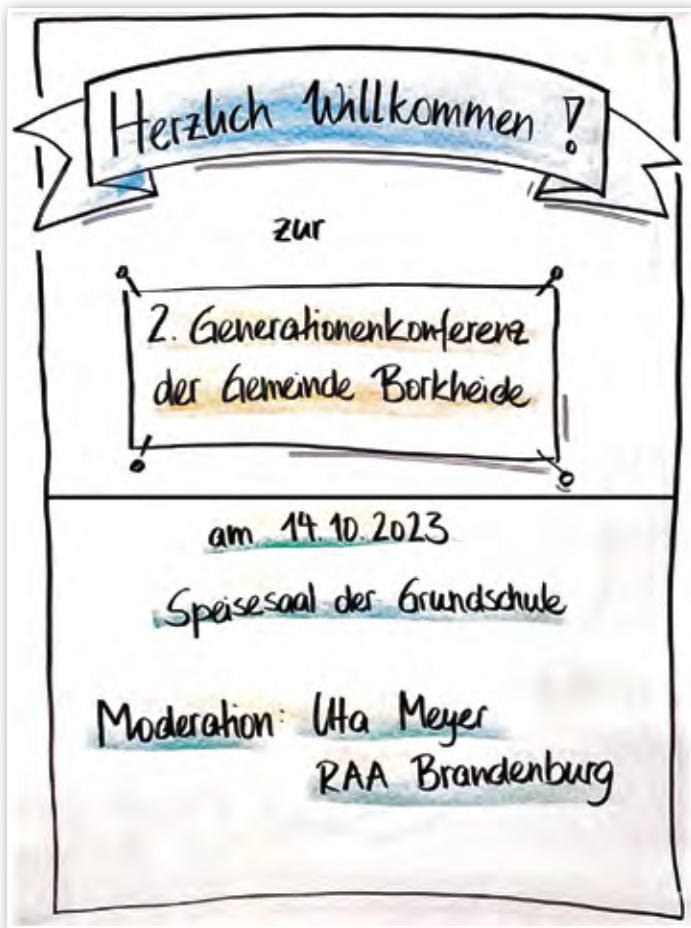 Herzlich Willkommen !
zur
2. Generationenkonferenz
der Gemeinde Borkheide
am 14.10.2023
Speisesaal der Grundschule
Moderation: Uta Meyer
RAA Brandenburg